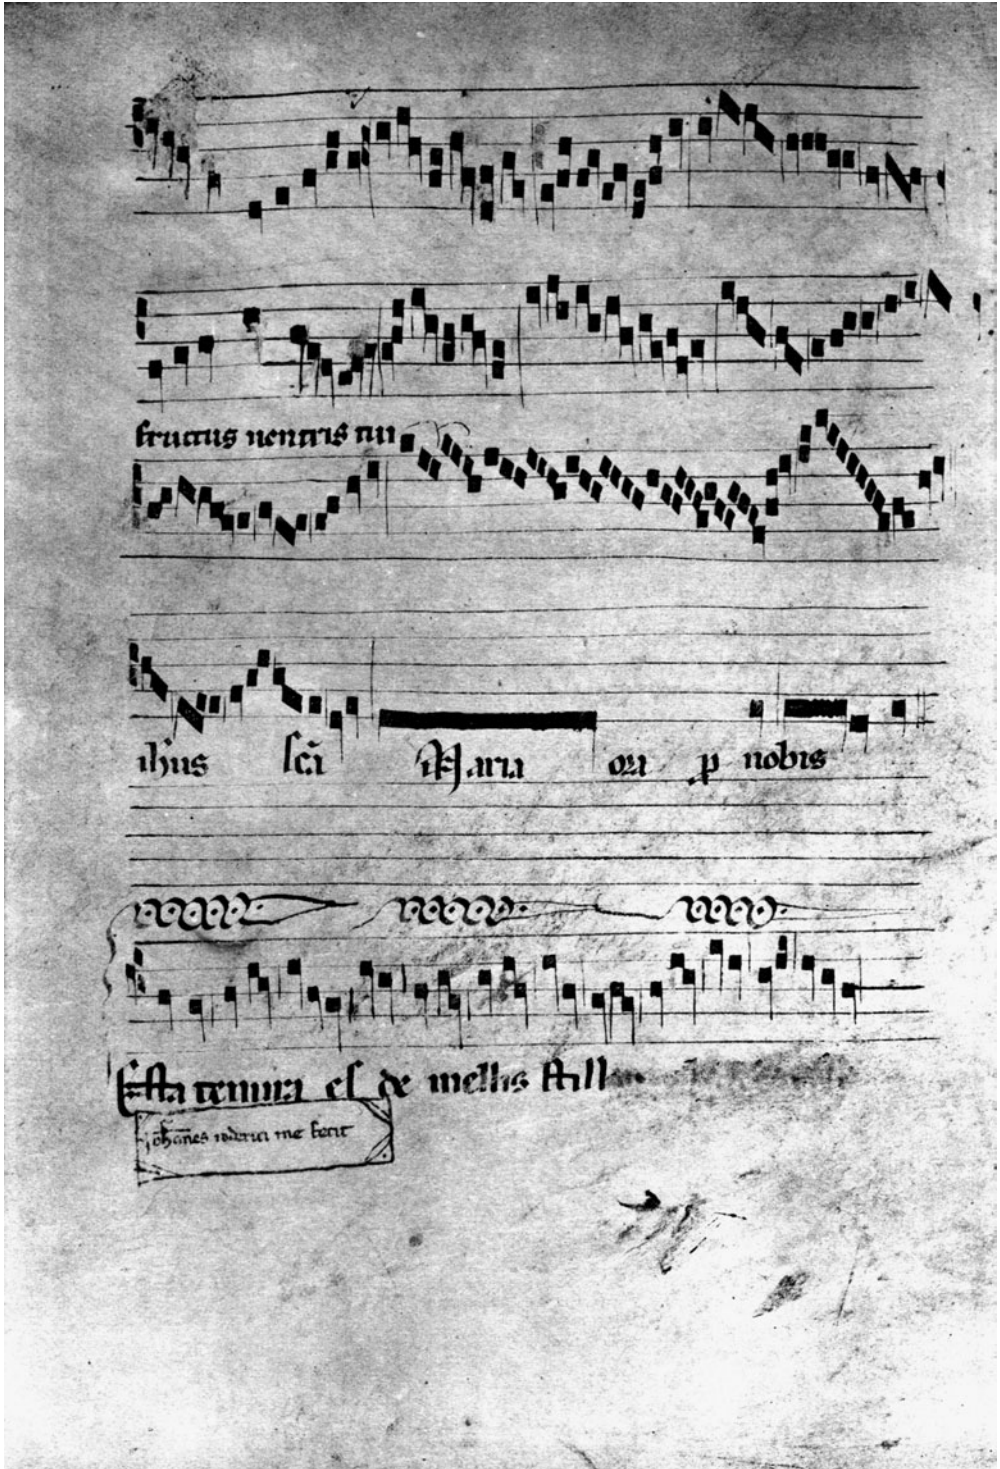 fructus uentris tui
ihus scā Maria ora p nobis
Esta tenura es de mellis still
johānes roderici me fecit